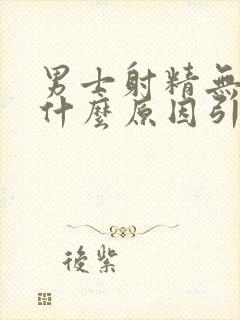 男士射精無
什麼原因引
後紫